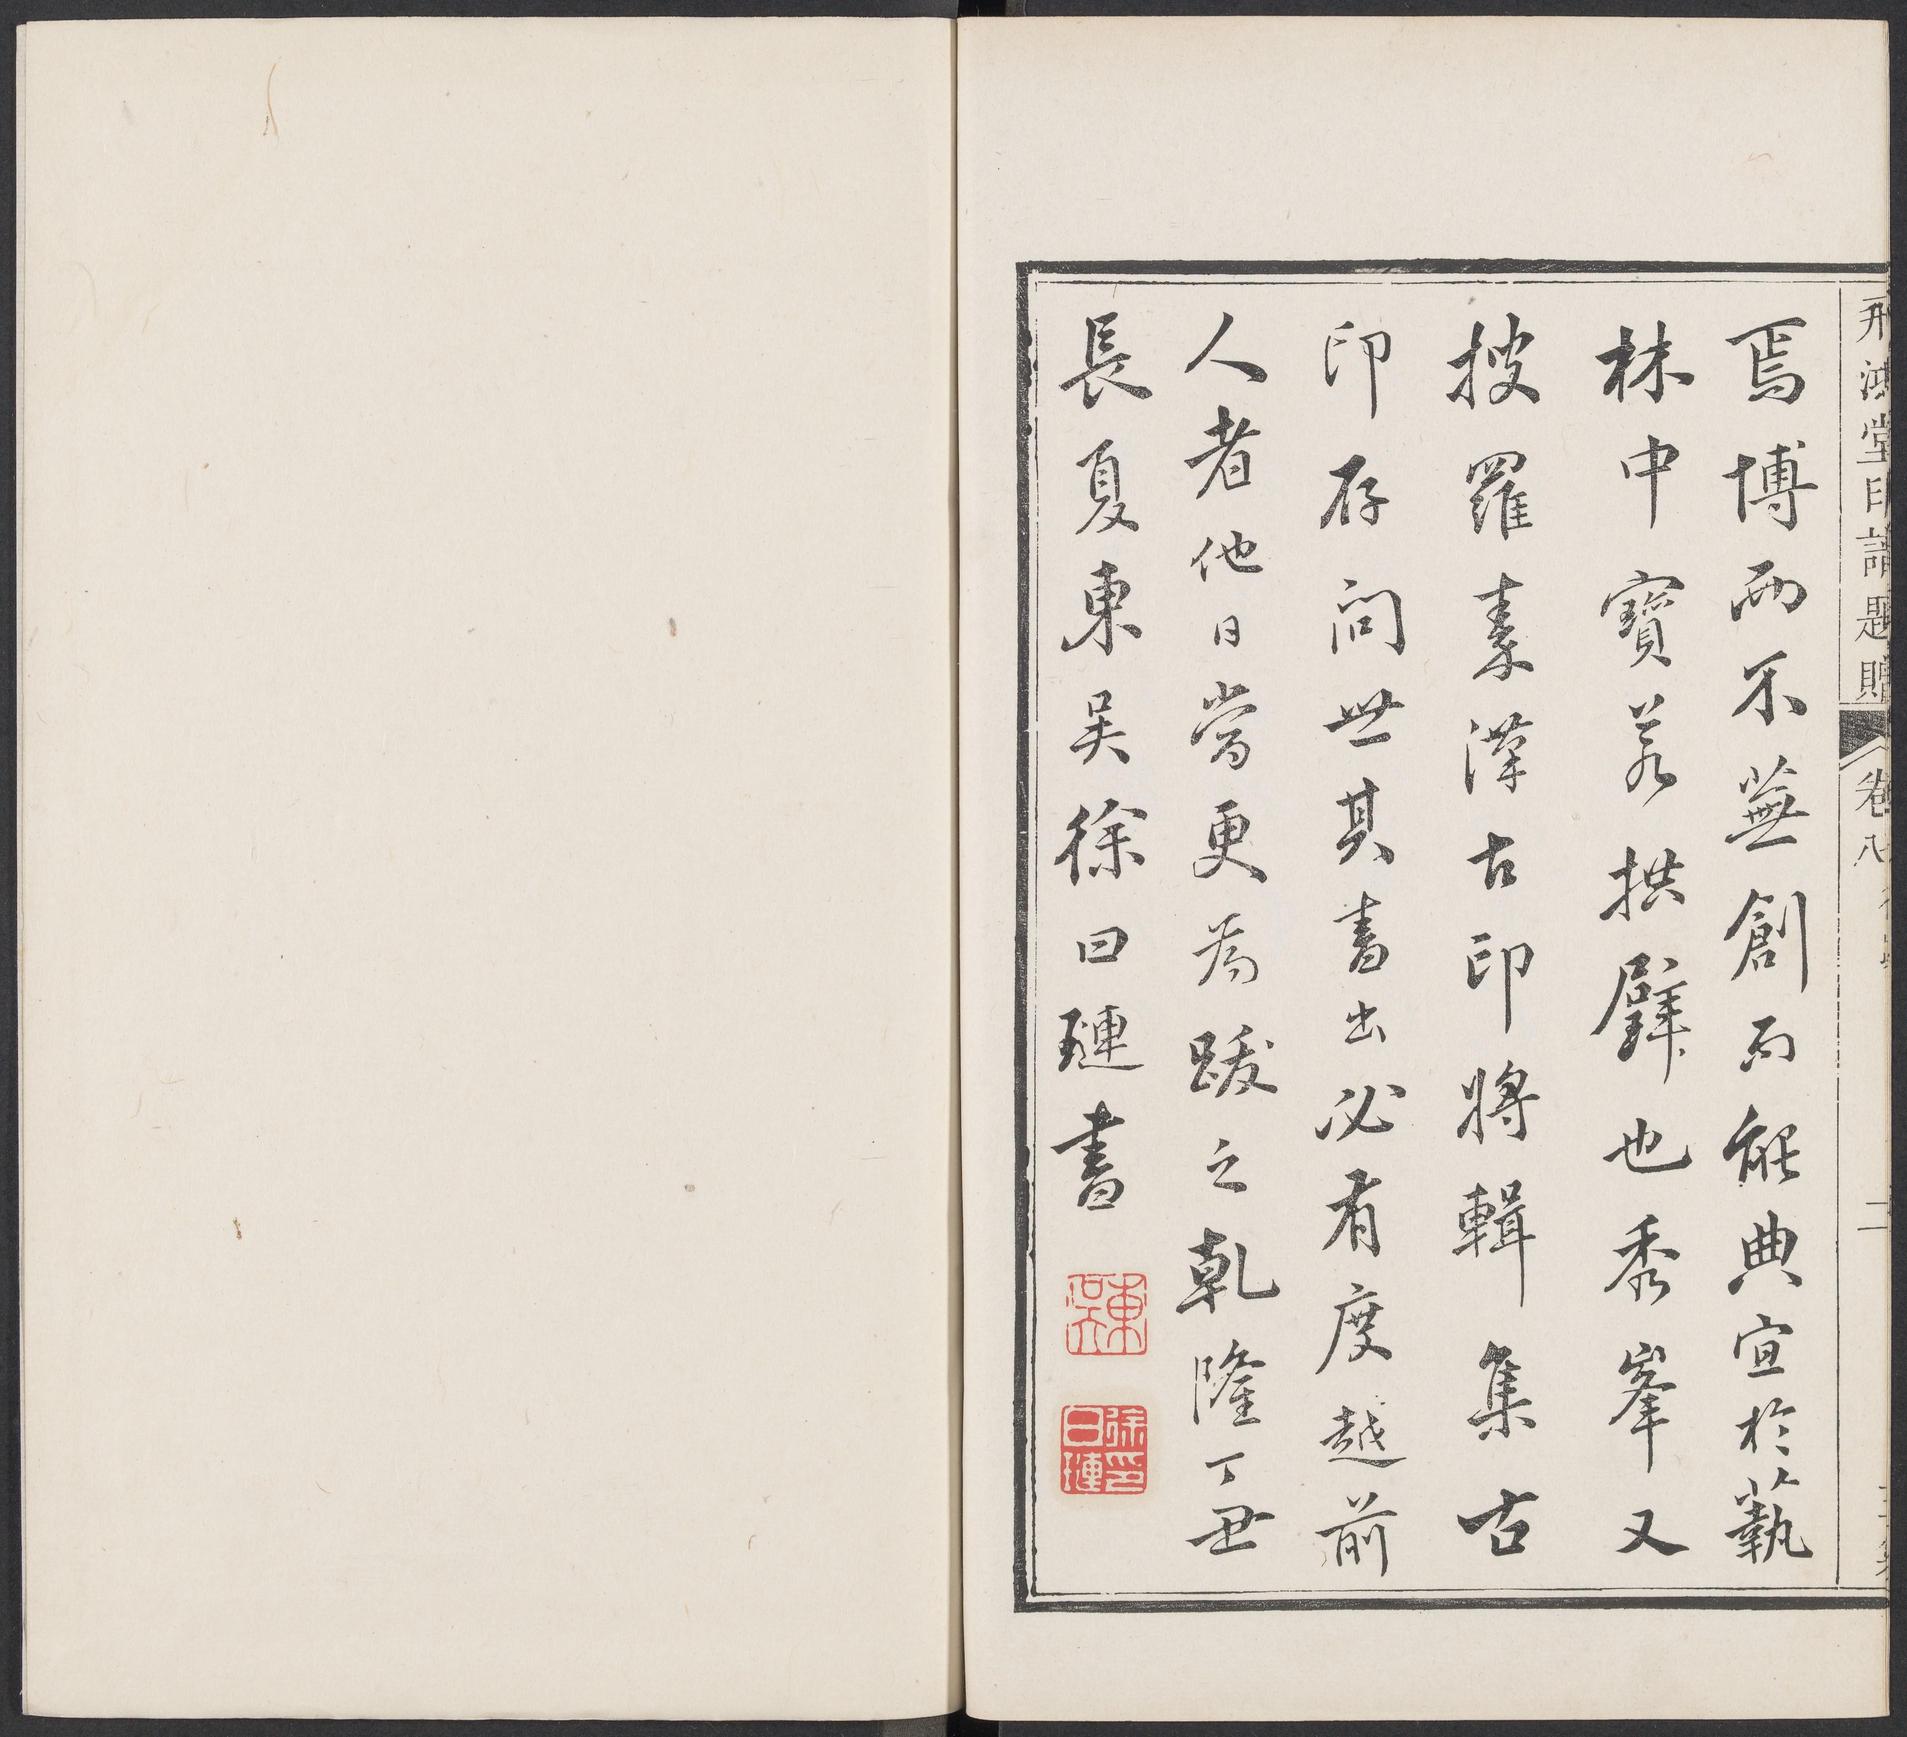 飛鴻堂印譜題贈 卷八 二
焉博而不蕪創而能典宣於藝
林中寶若拱璧也秀峯又
搜羅秦漢古印將輯集古
印存問世其書出必有度越前
人者他日當更為跋之乾隆丁丑
長夏東吳徐曰璉書
東吳
徐曰璉印